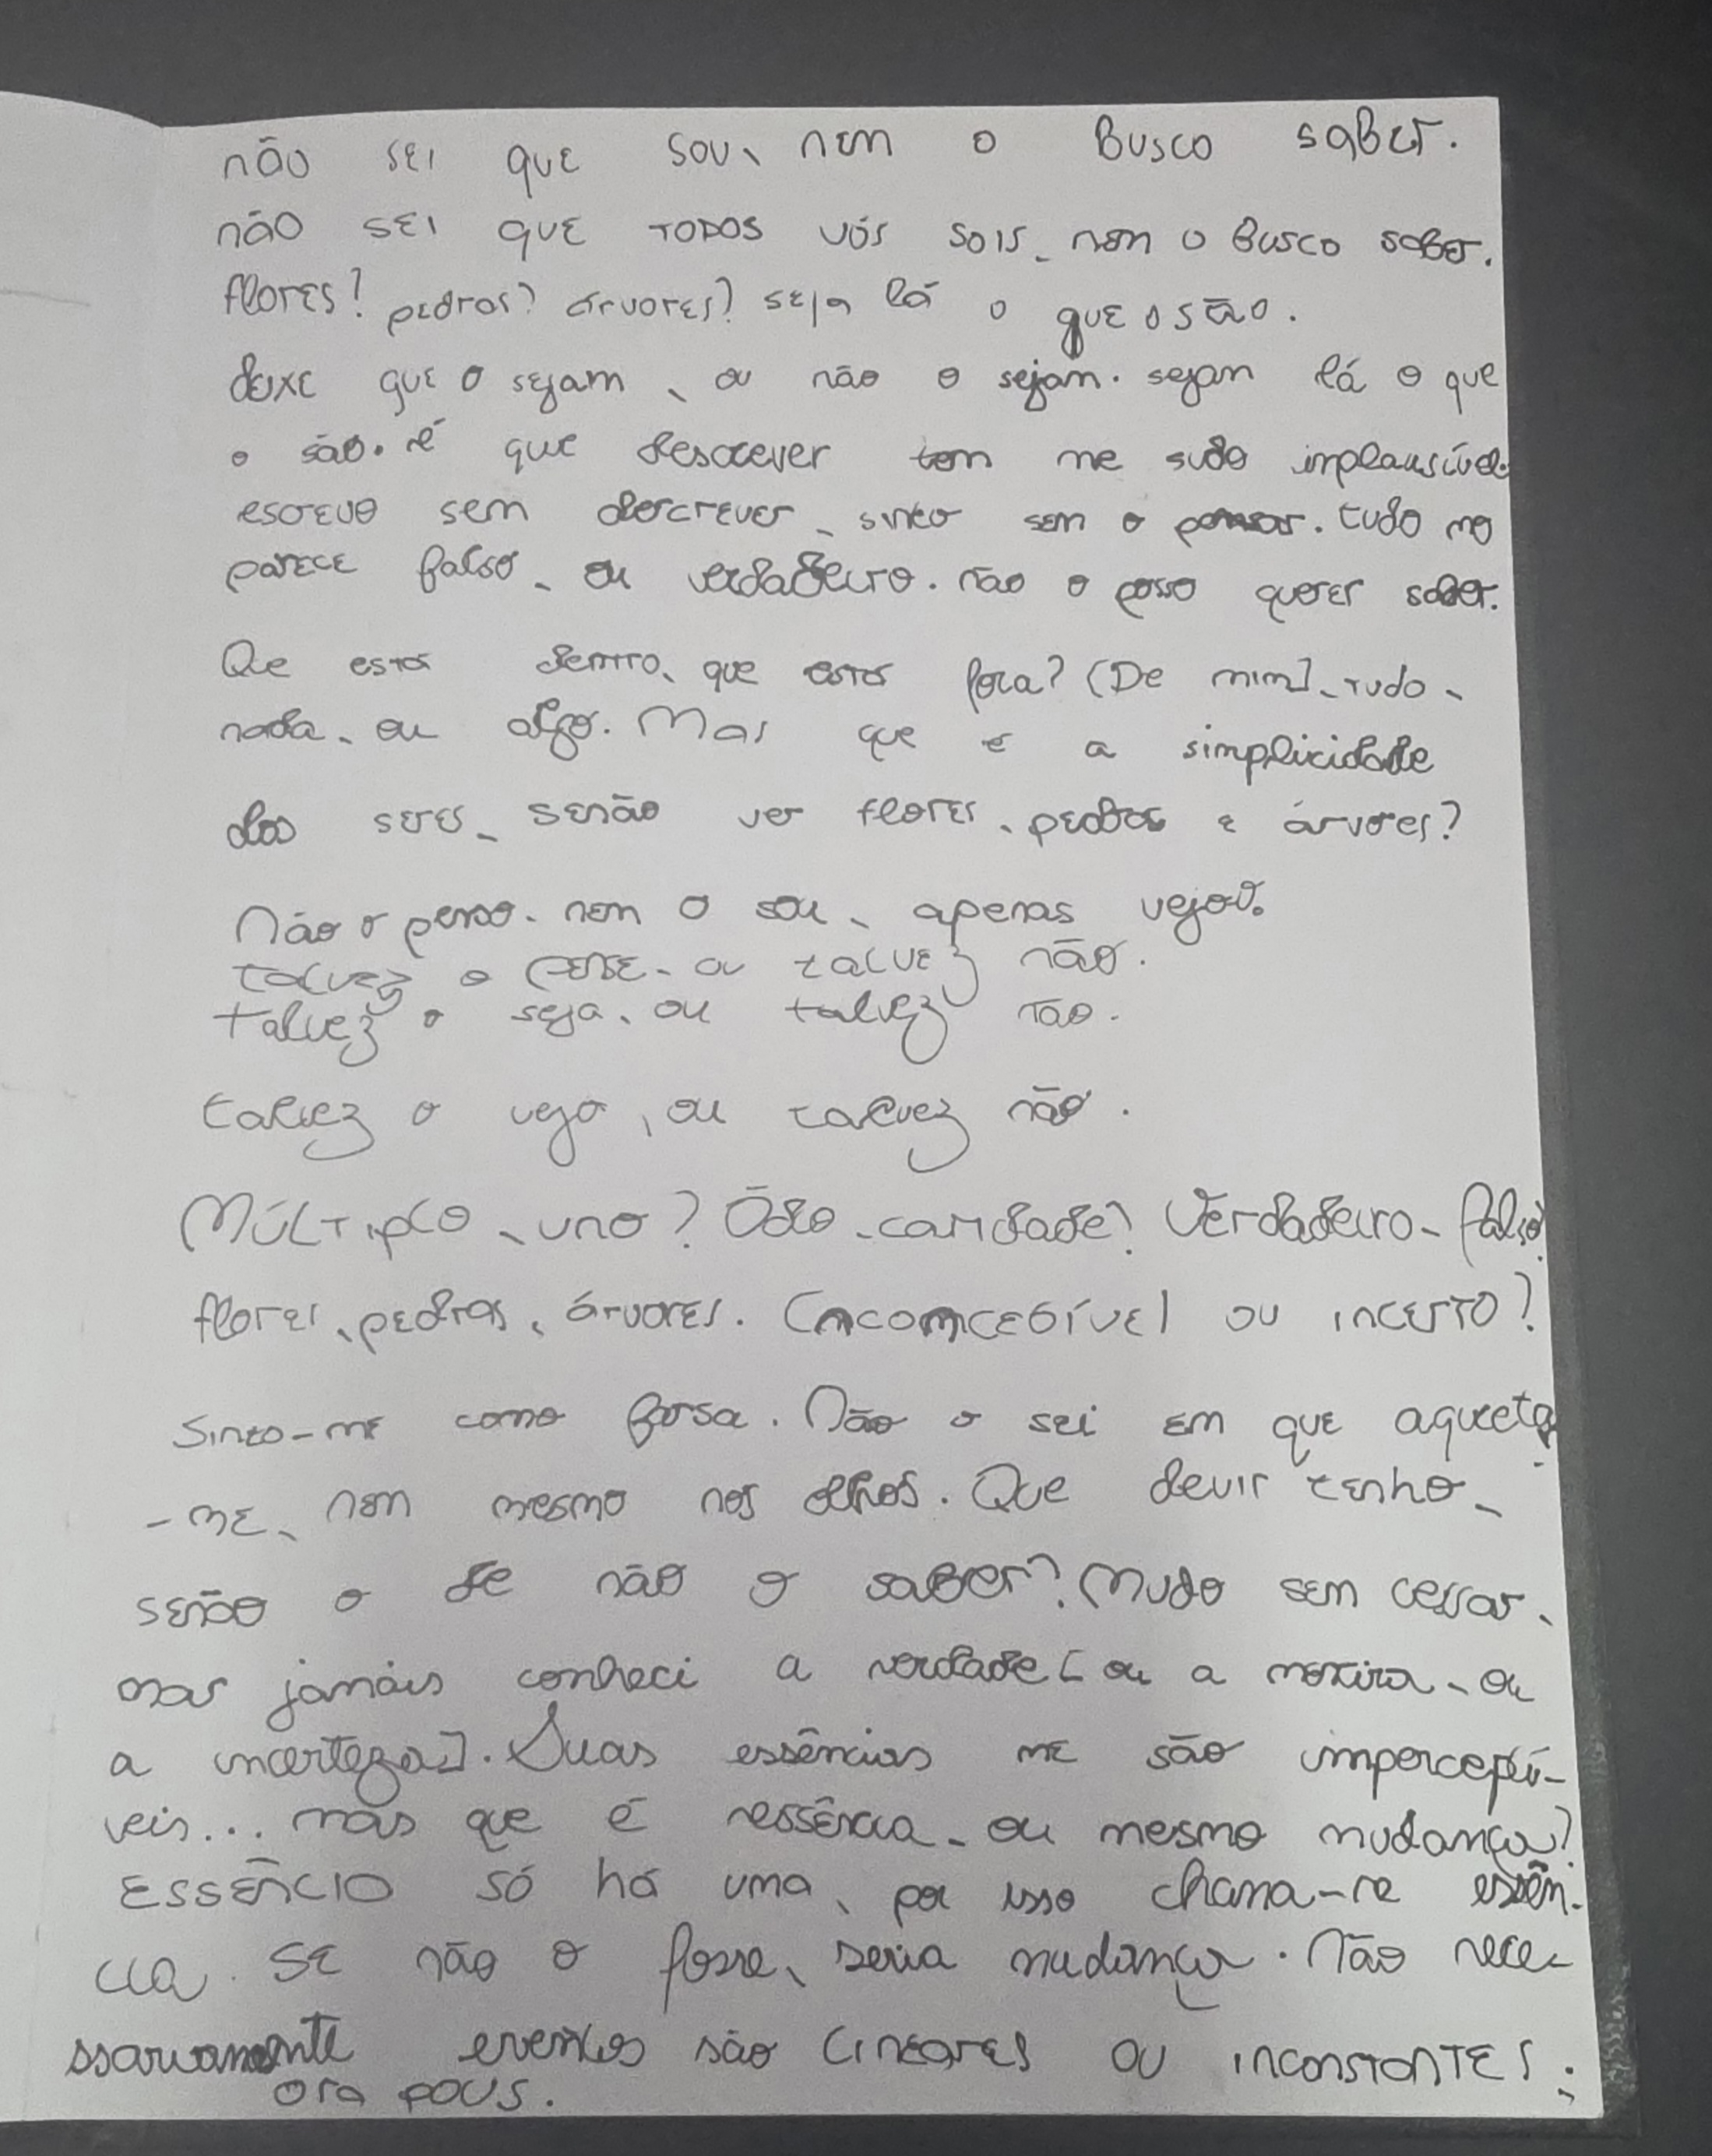 não sei que sou, nem o busco saber.
não sei que todos vós sois, nem o busco saber.
flores? pedras? árvores? seja lá o que o são.
deixe que o sejam, ou não o sejam. sejam lá o que
o são. é que descrever tem me sido implausível.
escrevo sem descrever, sinto sem o pensar. tudo me
parece falso, ou verdadeiro. não o posso querer saber.
Que está dentro, que está fora? [De mim], tudo,
nada, ou algo. Mas que é a simplicidade
dos seres, senão ver flores, pedras e árvores?
Não o penso, nem o sou, apenas vejo.
talvez o pense, ou talvez não.
talvez o seja, ou talvez não.
talvez o vejo, ou talvez não.
Múltiplo, uno? Ódio, caridade? Verdadeiro, falso?
flores, pedras, árvores. Inconcebível ou incerto?
Sinto-me como farsa. Não o sei em que aquieta
-me, nem mesmo nos olhos. Que devir tenho,
senão o de não o saber? Mudo sem cessar,
mas jamais conheci a verdade [ou a mentira, ou
a incerteza]. Suas essências me são imperceptí-
veis... mas que é essência, ou mesmo mudança?
Essêncio só há uma, por isso chama-se essên-
cia. Se não o fosse, seria mudança. Não nece-
ssariamente eventos são lineares ou inconstantes;
ora pois.